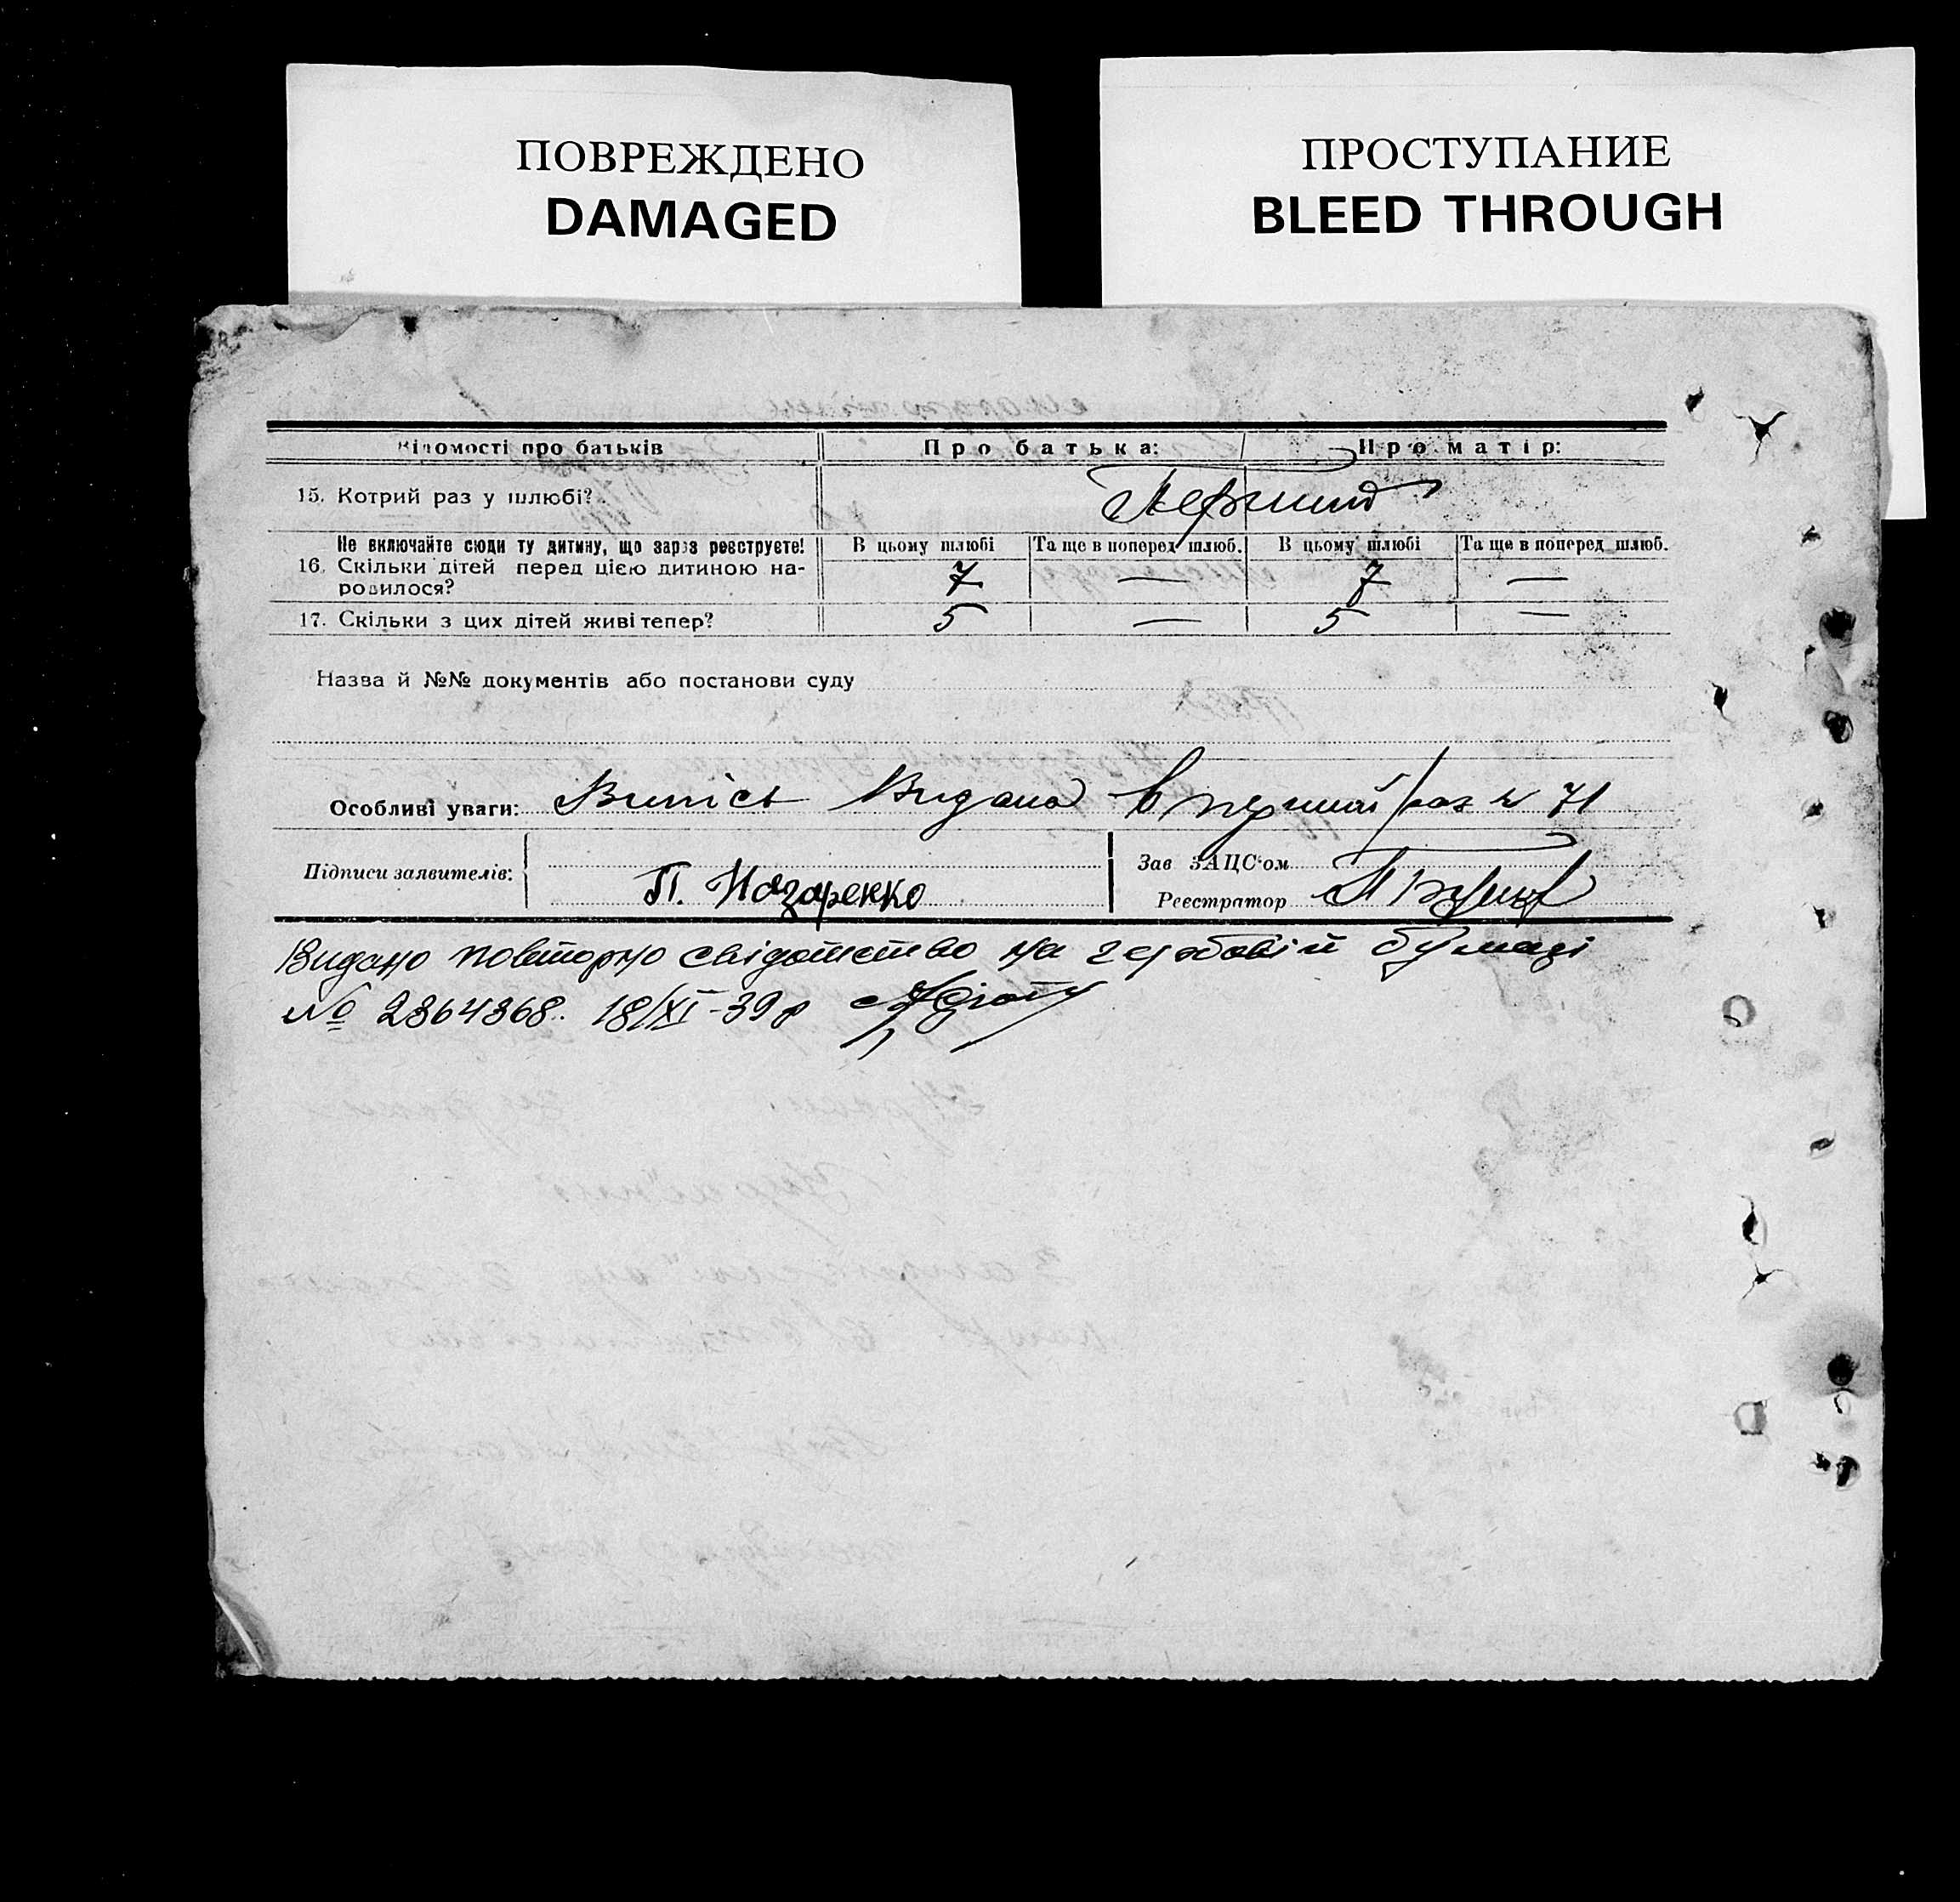 ПОВРЕЖДЕНО
DAMAGED
ПРОСТУПАНИЕ
BLEED THROUGH
Відомості про батьків Про батька: Про матір:
15. Котрий раз у шлюбі? Перший
Не включайте сюди ту дитину, що зараз реєструєте! В цьому шлюбі Та ще в поперед шлюб. В цьому шлюбі Та ще в поперед шлюб.
16. Скільки дітей перед цією дитиною на- 7 — 7 —
родилося?
17. Скільки з цих дітей живі тепер? 5 — 5 —
Назва й №№ документів або постанови суду
Особливі уваги: Випісь Видана в перший раз № 71
Підписи заявителів: Зав ЗАЦС'ом
П. Назаренко Реєстратор
Видано повторно свідотство на гербовій бумазі
№ 2364368. 18/XI-39 р